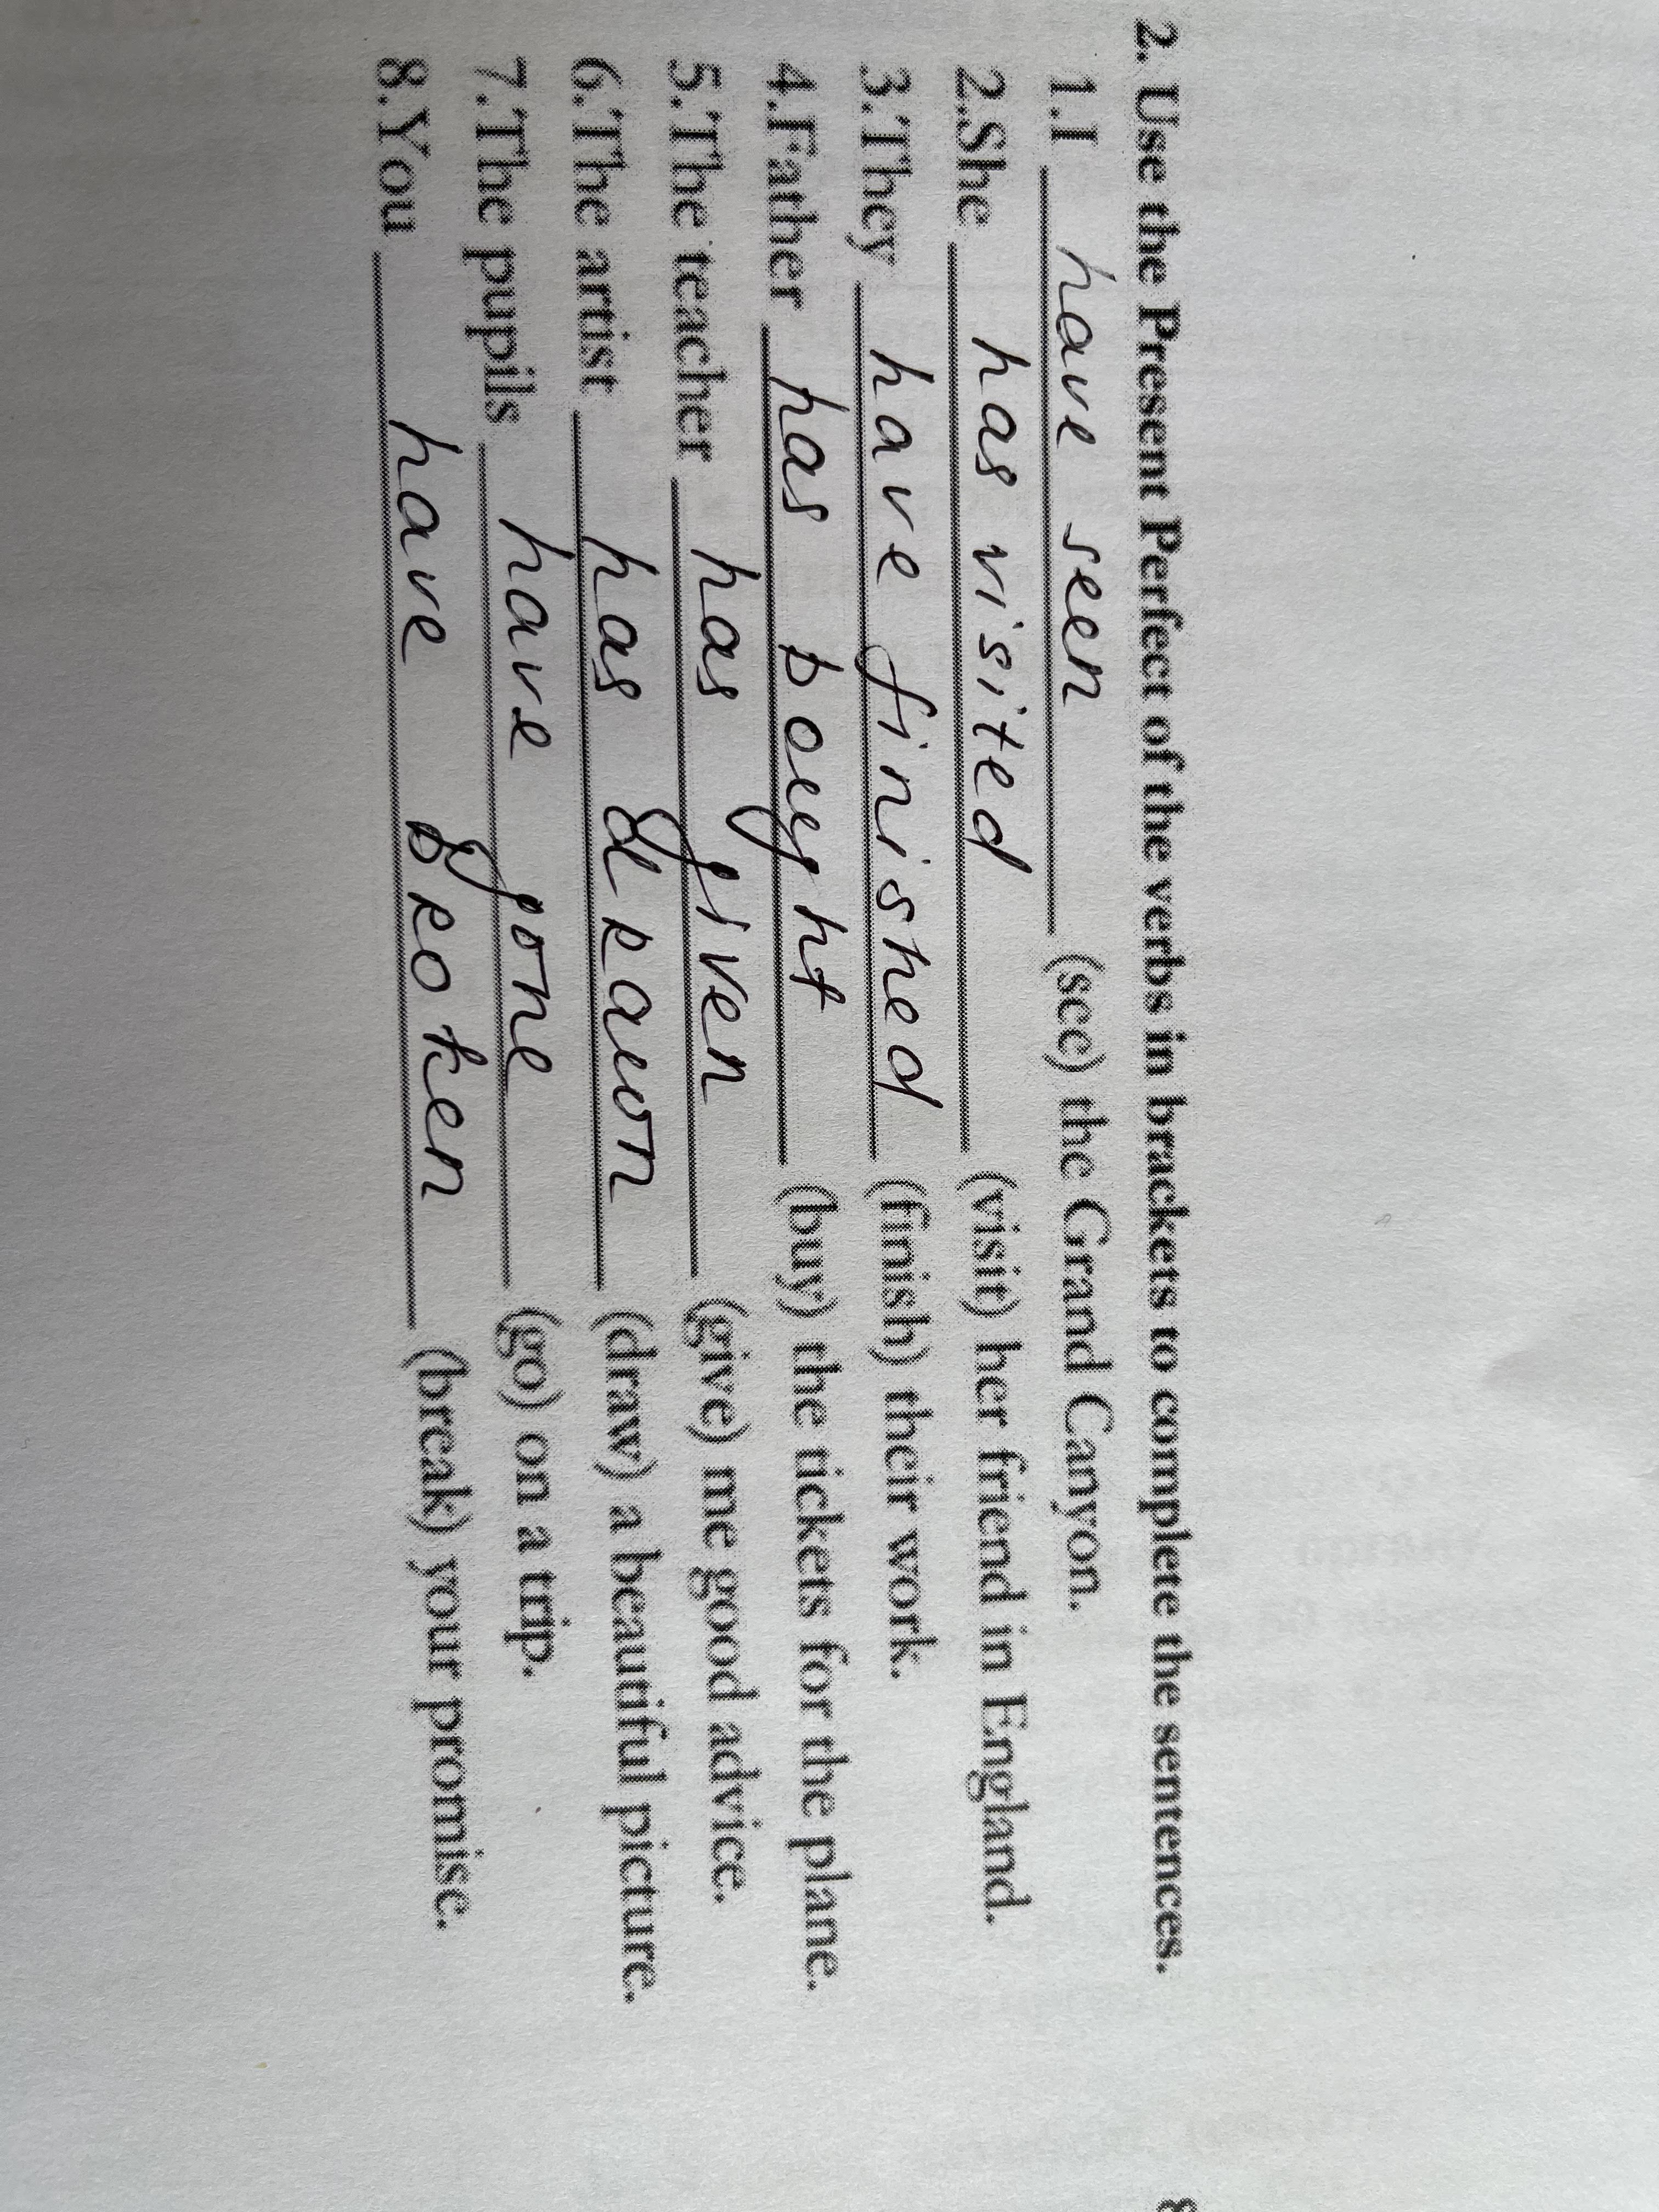 2. Use the Present Perfect of the verbs in brackets to complete the sentences.
1.I have seen (see) the Grand Canyon.
2.She has visited (visit) her friend in England.
3.They have finished (finish) their work.
4.Father has bought (buy) the tickets for the plane.
5.The teacher has given (give) me good advice.
6.The artist has drawn (draw) a beautiful picture.
7.The pupils have gone (go) on a trip.
8.You have broken (break) your promise.